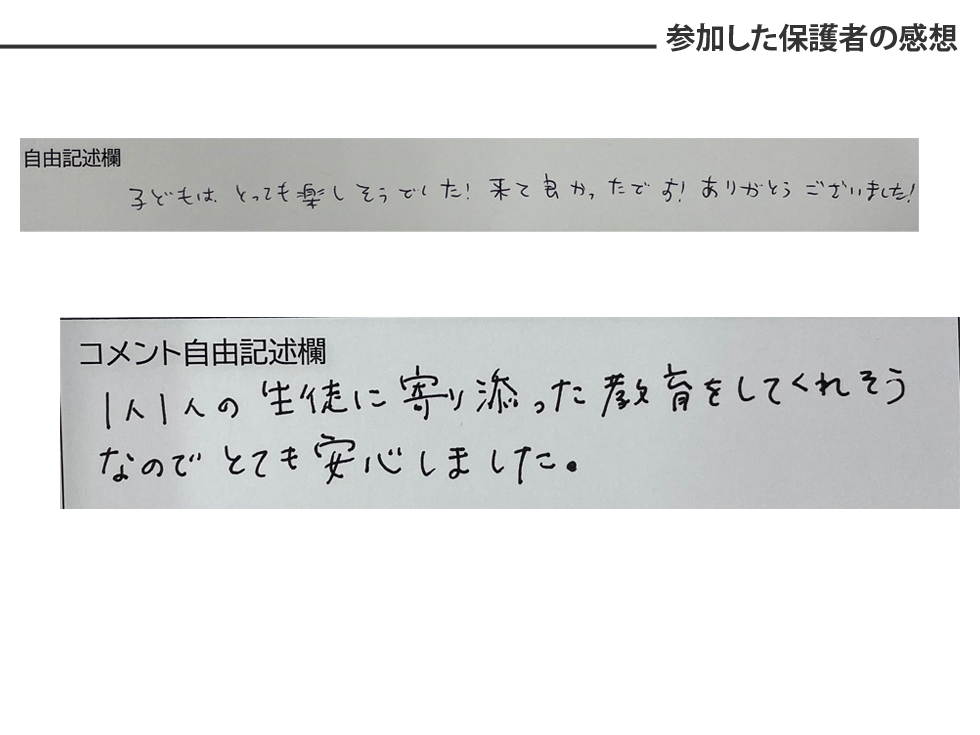 参加した保護者の感想
自由記述欄
子どもは、とっても楽しそうでした!来て良かったです!ありがとうございました!
コメント自由記述欄
1人1人の生徒に寄り添った教育をしてくれそう
なのでとても安心しました。